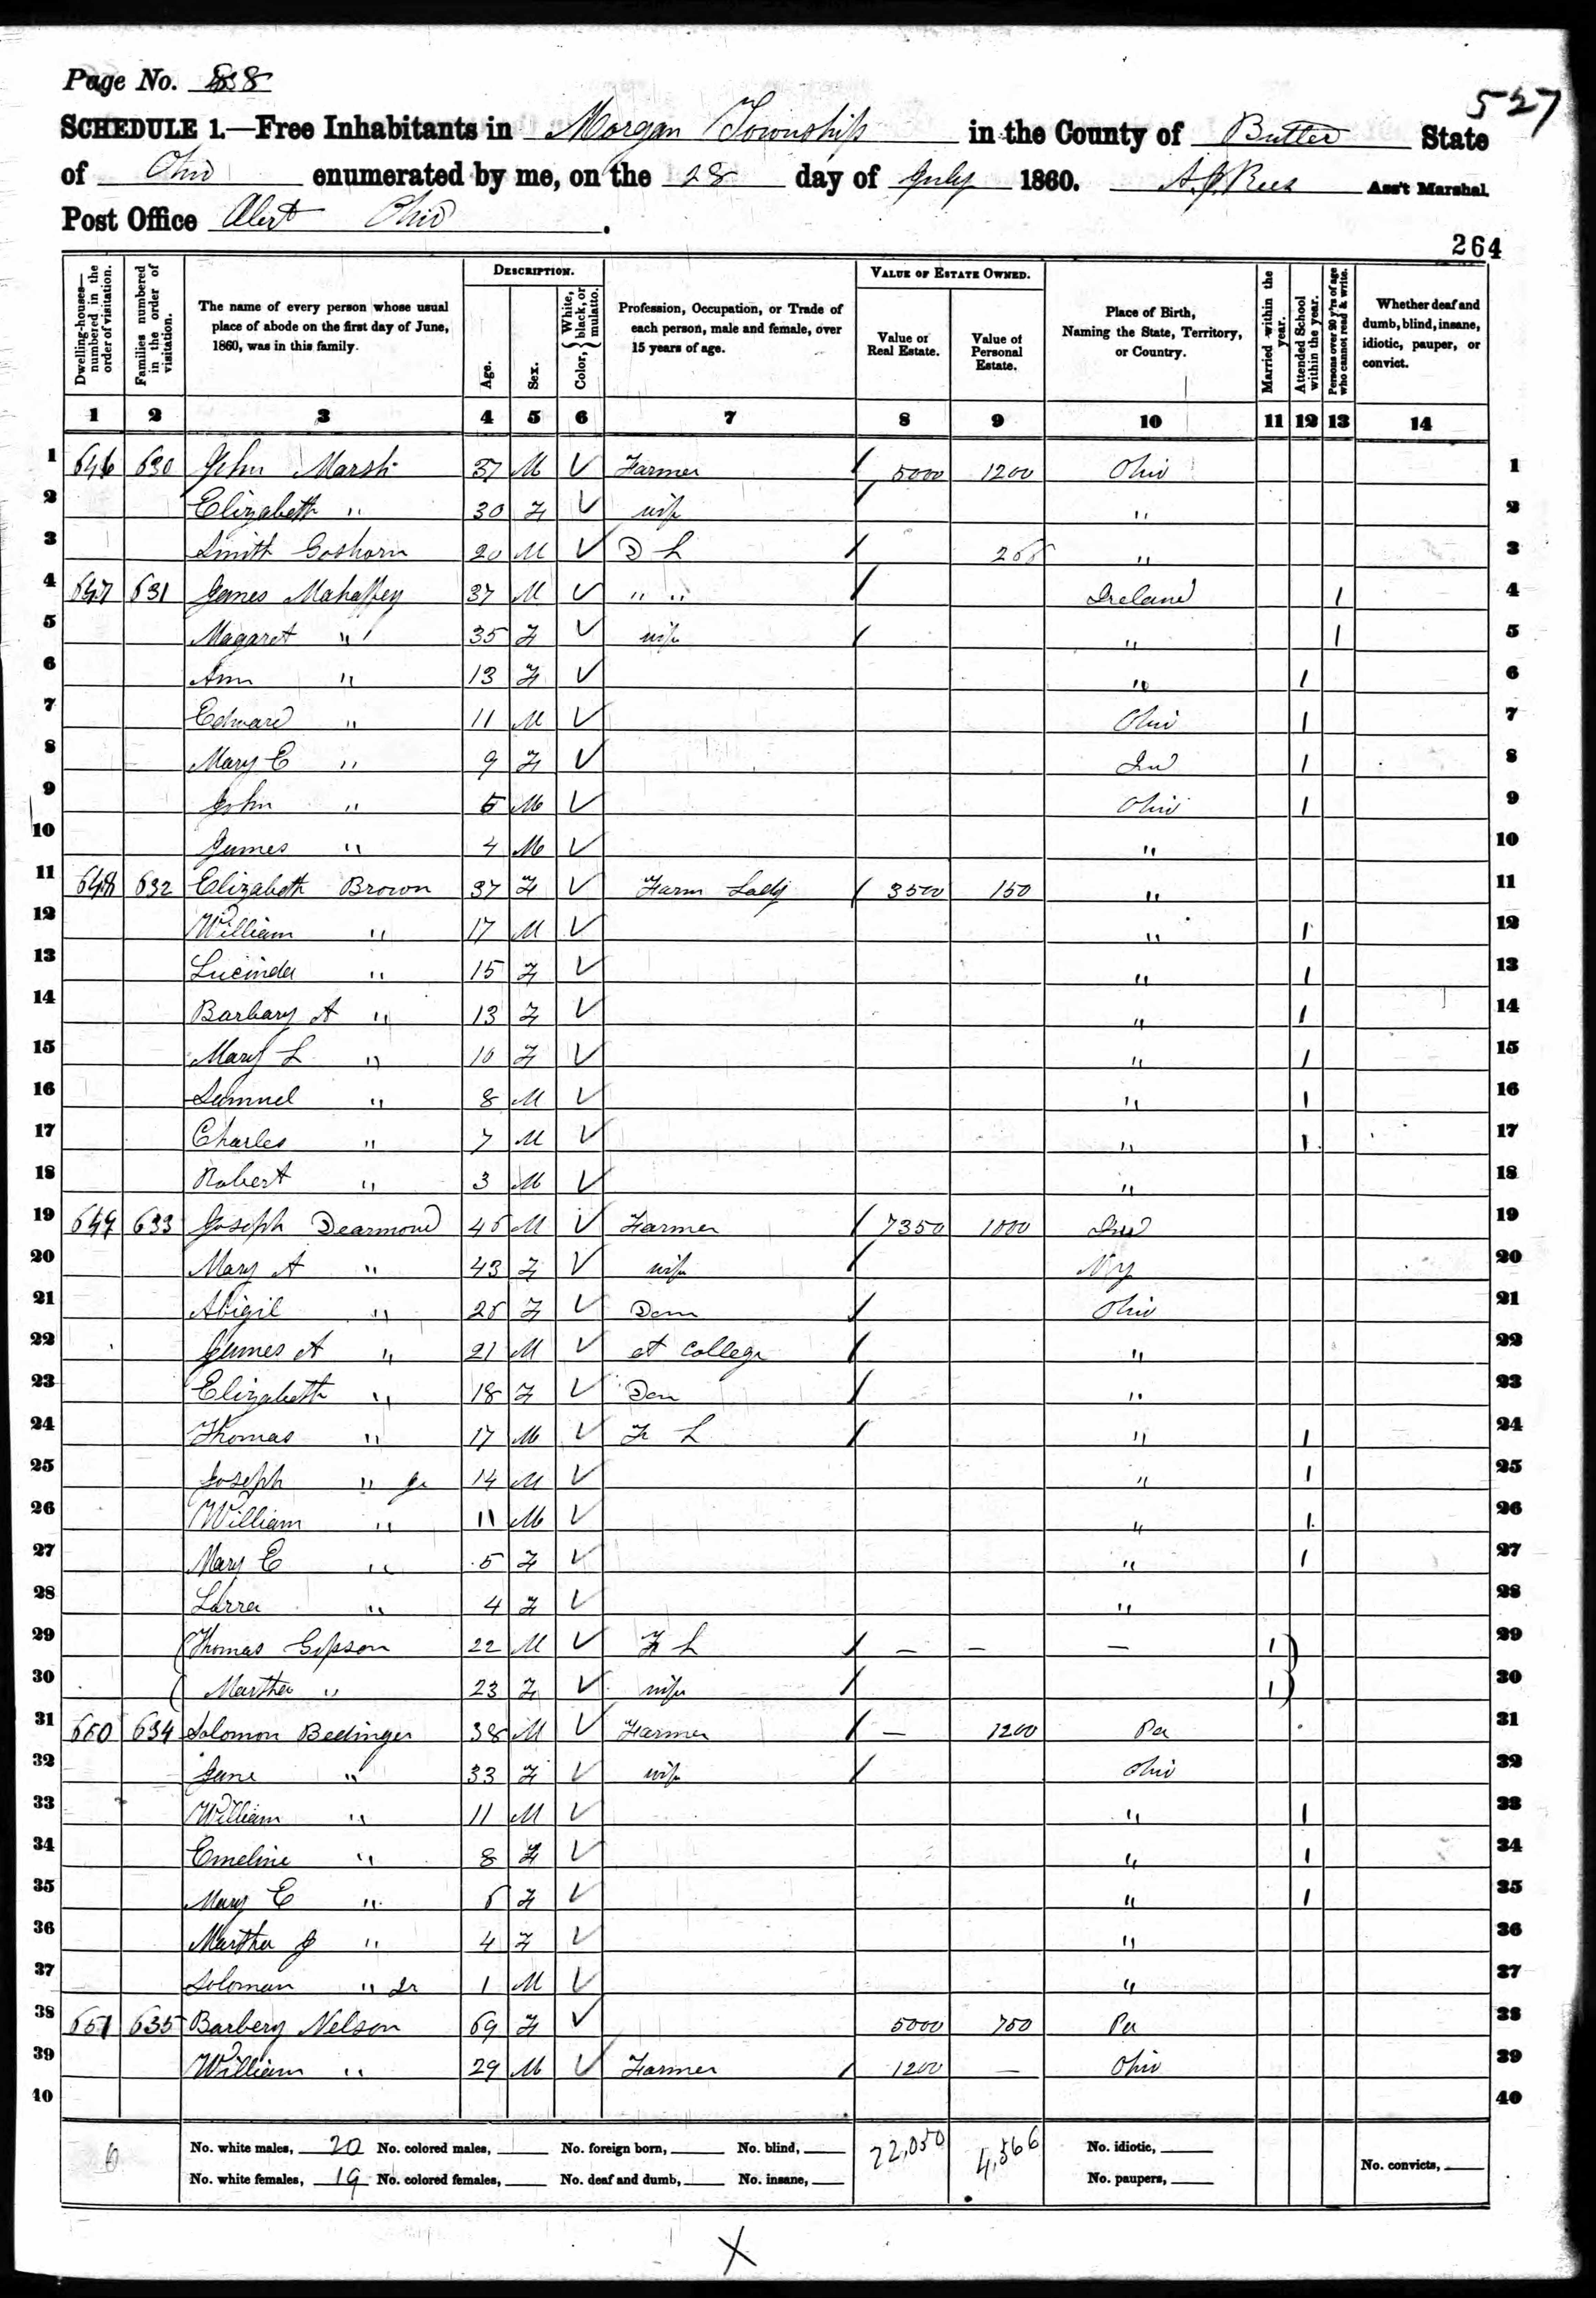 Page No. 88
527
SCHEDULE 1.—Free Inhabitants in Morgan Township in the County of Butler State
of Ohio enumerated by me, on the 28 day of July 1860. Ass't Marshal.
Post Office Alert Ohio.
264
Dwelling-houses—numbered in the order of visitation. Families numbered in the order of visitation. The name of every person whose usual place of abode on the first day of June, 1860, was in this family. DESCRIPTION. Age. Sex. Color, { White, black, or mulatto. Profession, Occupation, or Trade of each person, male and female, over 15 years of age. VALUE OF ESTATE OWNED. Value of Real Estate. Value of Personal Estate. Place of Birth, Naming the State, Territory, or Country. Married within the year. Attended School within the year. Persons over 20 y'rs of age who cannot read & write. Whether deaf and dumb, blind, insane, idiotic, pauper, or convict.
1 2 3 4 5 6 7 8 9 10 11 12 13 14
1 646 630 John Marsh 37 M √ Farmer / 5000 1200 Ohio 1
2 Elizabeth " 30 F √ wife / " 2
3 Smith Goshorn 20 M √ D L / " 3
4 647 631 James Mahaffey 37 M √ " " / Ireland 1 4
5 Magaret " 35 F √ wife / " 1 5
6 Ann " 13 F √ " 1 6
7 Edward " 11 M √ Ohio 1 7
8 Mary E " 9 F √ In 1 8
9 John " 5 M √ Ohio 1 9
10 James " 4 M √ " 10
11 648 632 Elizabeth Brown 37 F √ Farm Lady / 3500 150 " 11
12 William " 17 M √ " 1 12
13 Lucinda " 15 F √ " 1 13
14 Barbary A " 13 F √ " 1 14
15 Mary L " 10 F √ " 1 15
16 Samuel " 8 M √ " 1 16
17 Charles " 7 M √ " 1 17
18 Robert " 3 M √ " 18
19 649 633 Joseph Dearmond 45 M √ Farmer / 7350 1000 Ind 19
20 Mary A " 43 F √ wife / N y 20
21 Abigil " 25 F √ Dom / Ohio 21
22 James A " 21 M √ at College / " 22
23 Elizabeth " 18 F √ Dom / " 23
24 Thomas " 17 M √ F L / " 1 24
25 Joseph " Jr 14 M √ " 1 25
26 William " 11 M √ " 1 26
27 Mary E " 5 F √ " 1 27
28 Larra " 4 F √ " 28
29 Thomas Gipson 22 M √ F L / — — — 1 29
30 Martha " 23 F √ wife / 1 30
31 650 634 Solomon Bedinger 38 M √ Farmer / — 1200 Pa 31
32 Jane " 33 F √ wife / Ohio 32
33 William " 11 M √ " 1 33
34 Emeline " 8 F √ " 1 34
35 Mary E " F √ " 1 35
36 Martha J " 4 F √ " 36
37 Soloman " Jr 1 M √ " 37
38 651 635 Barbery Nelson 69 F √ 5000 750 Pa 38
39 William " 29 M √ Farmer / 1200 — Ohio 39
40 40
6 No. white males, 20 No. colored males, No. foreign born, No. blind, 22,050 4,566 No. idiotic,
No. white females, 19 No. colored females, No. deaf and dumb, No. insane, No. paupers, No. convicts,
X